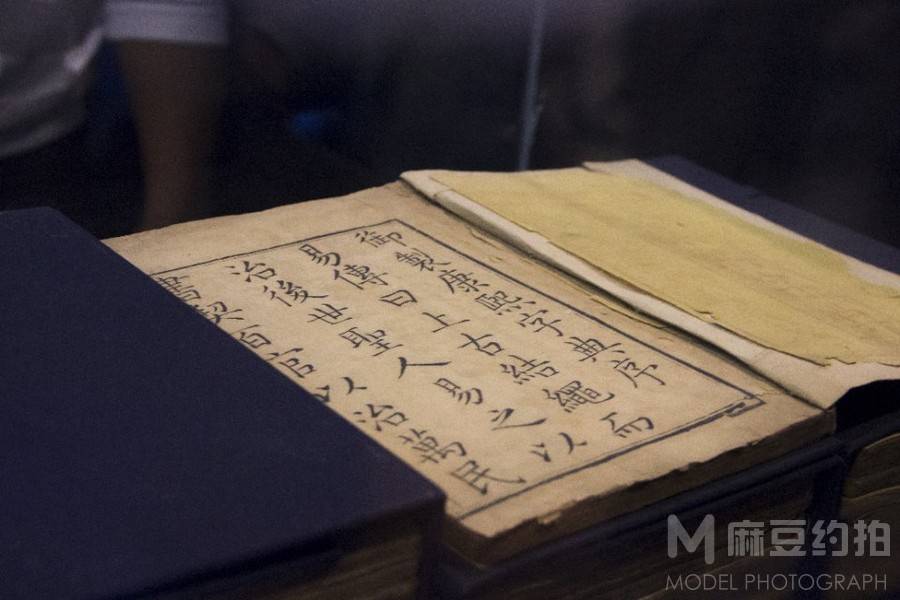 御製康熙字典序
易傳曰上古結繩而
治後世聖人易之以
書契百官以治萬民
M 麻豆约拍
MODEL PHOTOGRAPH